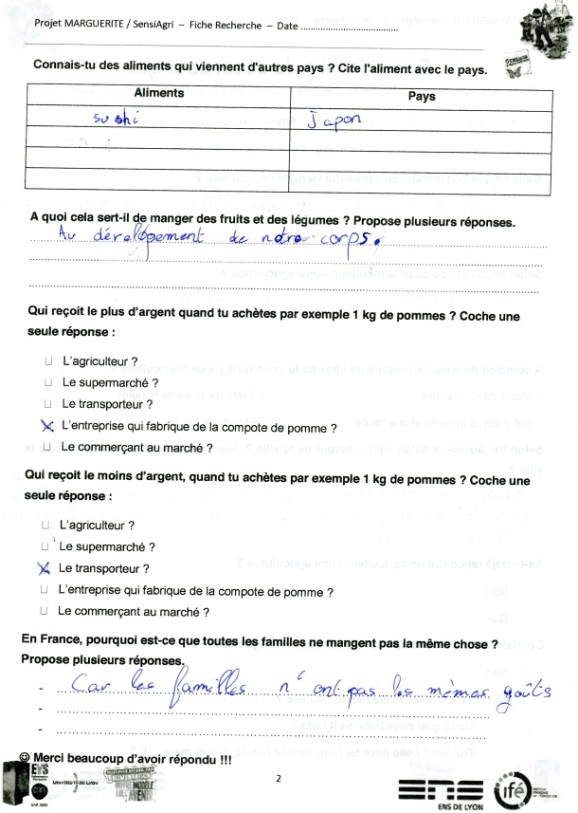 Projet MARGUERITE / SensiAgri – Fiche Recherche – Date ..............................
Connais-tu des aliments qui viennent d'autres pays ? Cite l'aliment avec le pays.
Aliments Pays
sushi Japon
A quoi cela sert-il de manger des fruits et des légumes ? Propose plusieurs réponses.
Au dévelopement de notre corps.
Qui reçoit le plus d'argent quand tu achètes par exemple 1 kg de pommes ? Coche une
seule réponse :
L'agriculteur ?
Le supermarché ?
Le transporteur ?
L'entreprise qui fabrique de la compote de pomme ?
Le commerçant au marché ?
Qui reçoit le moins d'argent, quand tu achètes par exemple 1 kg de pommes ? Coche une
seule réponse :
L'agriculteur ?
Le supermarché ?
Le transporteur ?
L'entreprise qui fabrique de la compote de pomme ?
Le commerçant au marché ?
En France, pourquoi est-ce que toutes les familles ne mangent pas la même chose ?
Propose plusieurs réponses.
- Car les familles n'ont pas les mêmes goûts
-
-
☺ Merci beaucoup d'avoir répondu !!!
2
ENS
ENS DE LYON
ifé